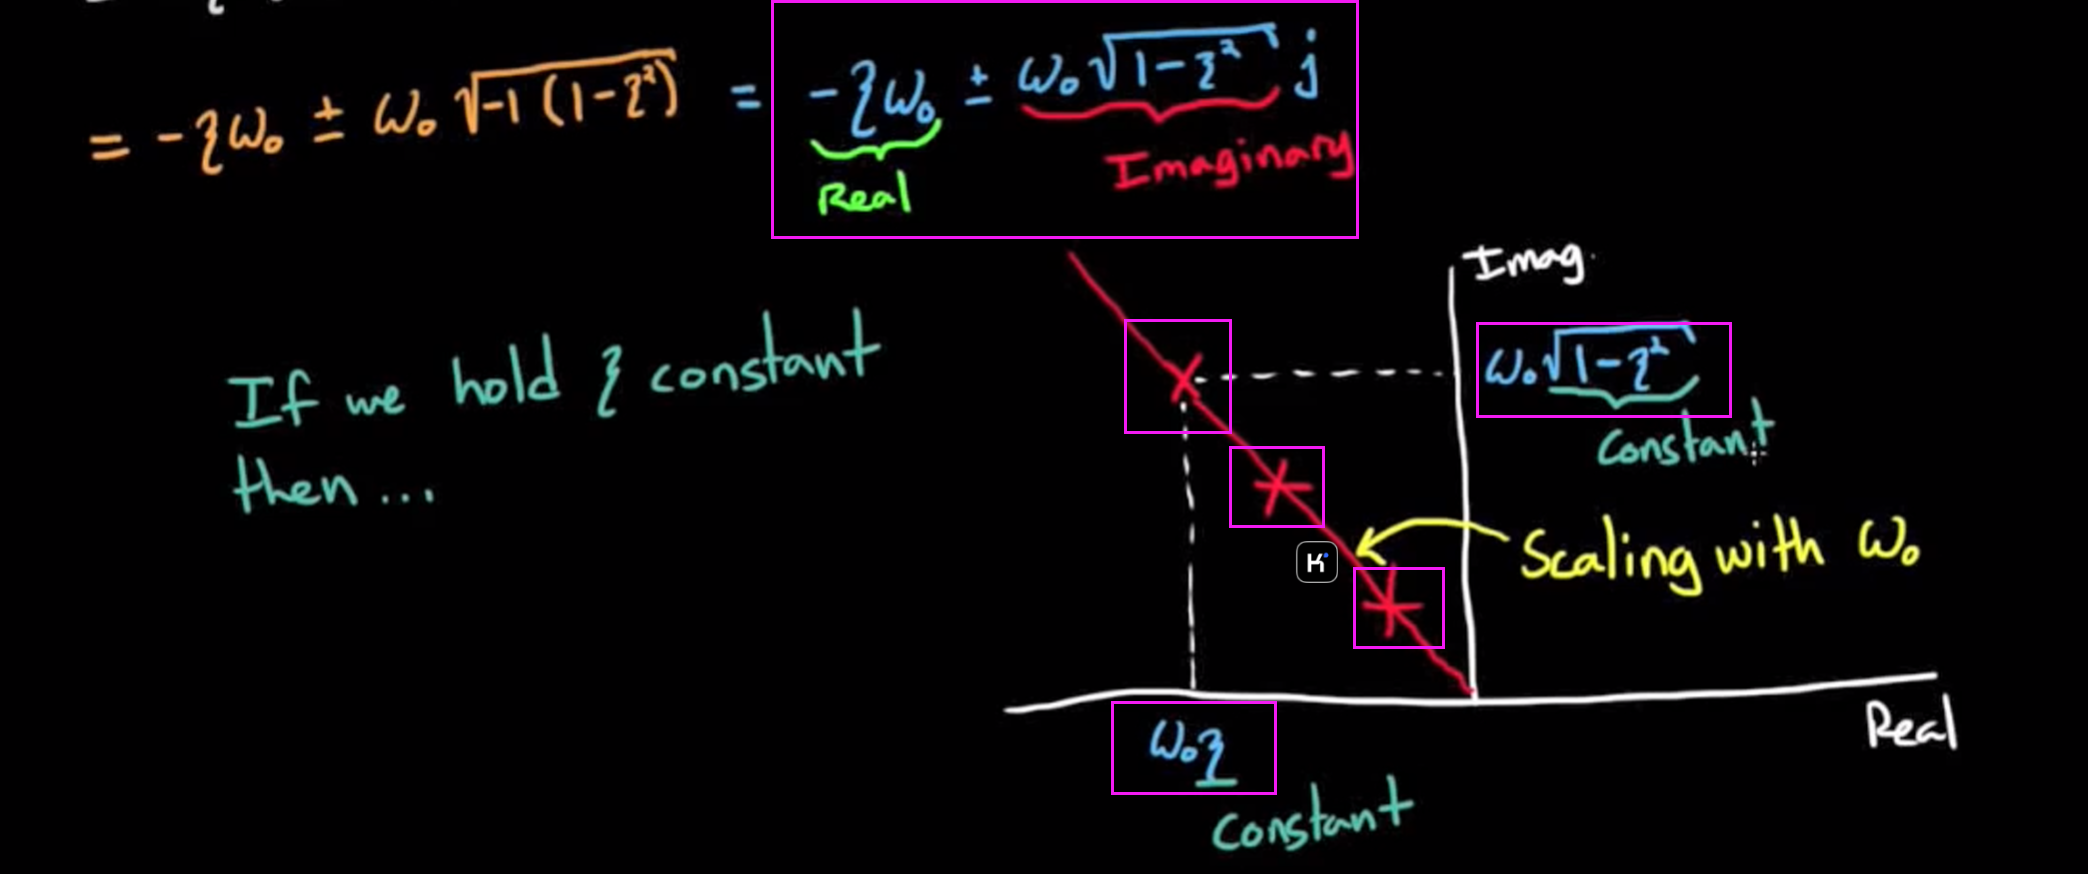 = -ζω₀ ± ω₀ √-1 (1-ζ²) = -ζω₀ ± ω₀√1-ζ² j
Real
Imaginary
Imag.
If we hold ζ constant
then ...
ω₀√1-ζ²
Constant
K
Scaling with ω₀
Real
ω₀ζ
Constant